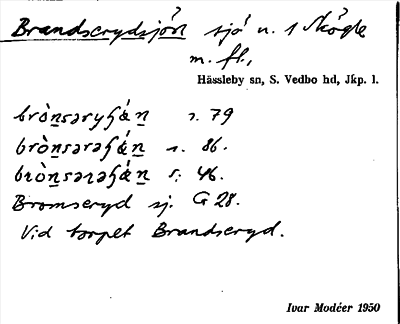 Brandserydsjön sjö n. 1 Skögle
m. fl.,
Hässleby sn, S. Vedbo hd, Jkp. l.
s. 79
s. 86.
s. 46.
Bromseryd sj. G 28.
Vid torpet Brandseryd.
Ivar Modéer 1950